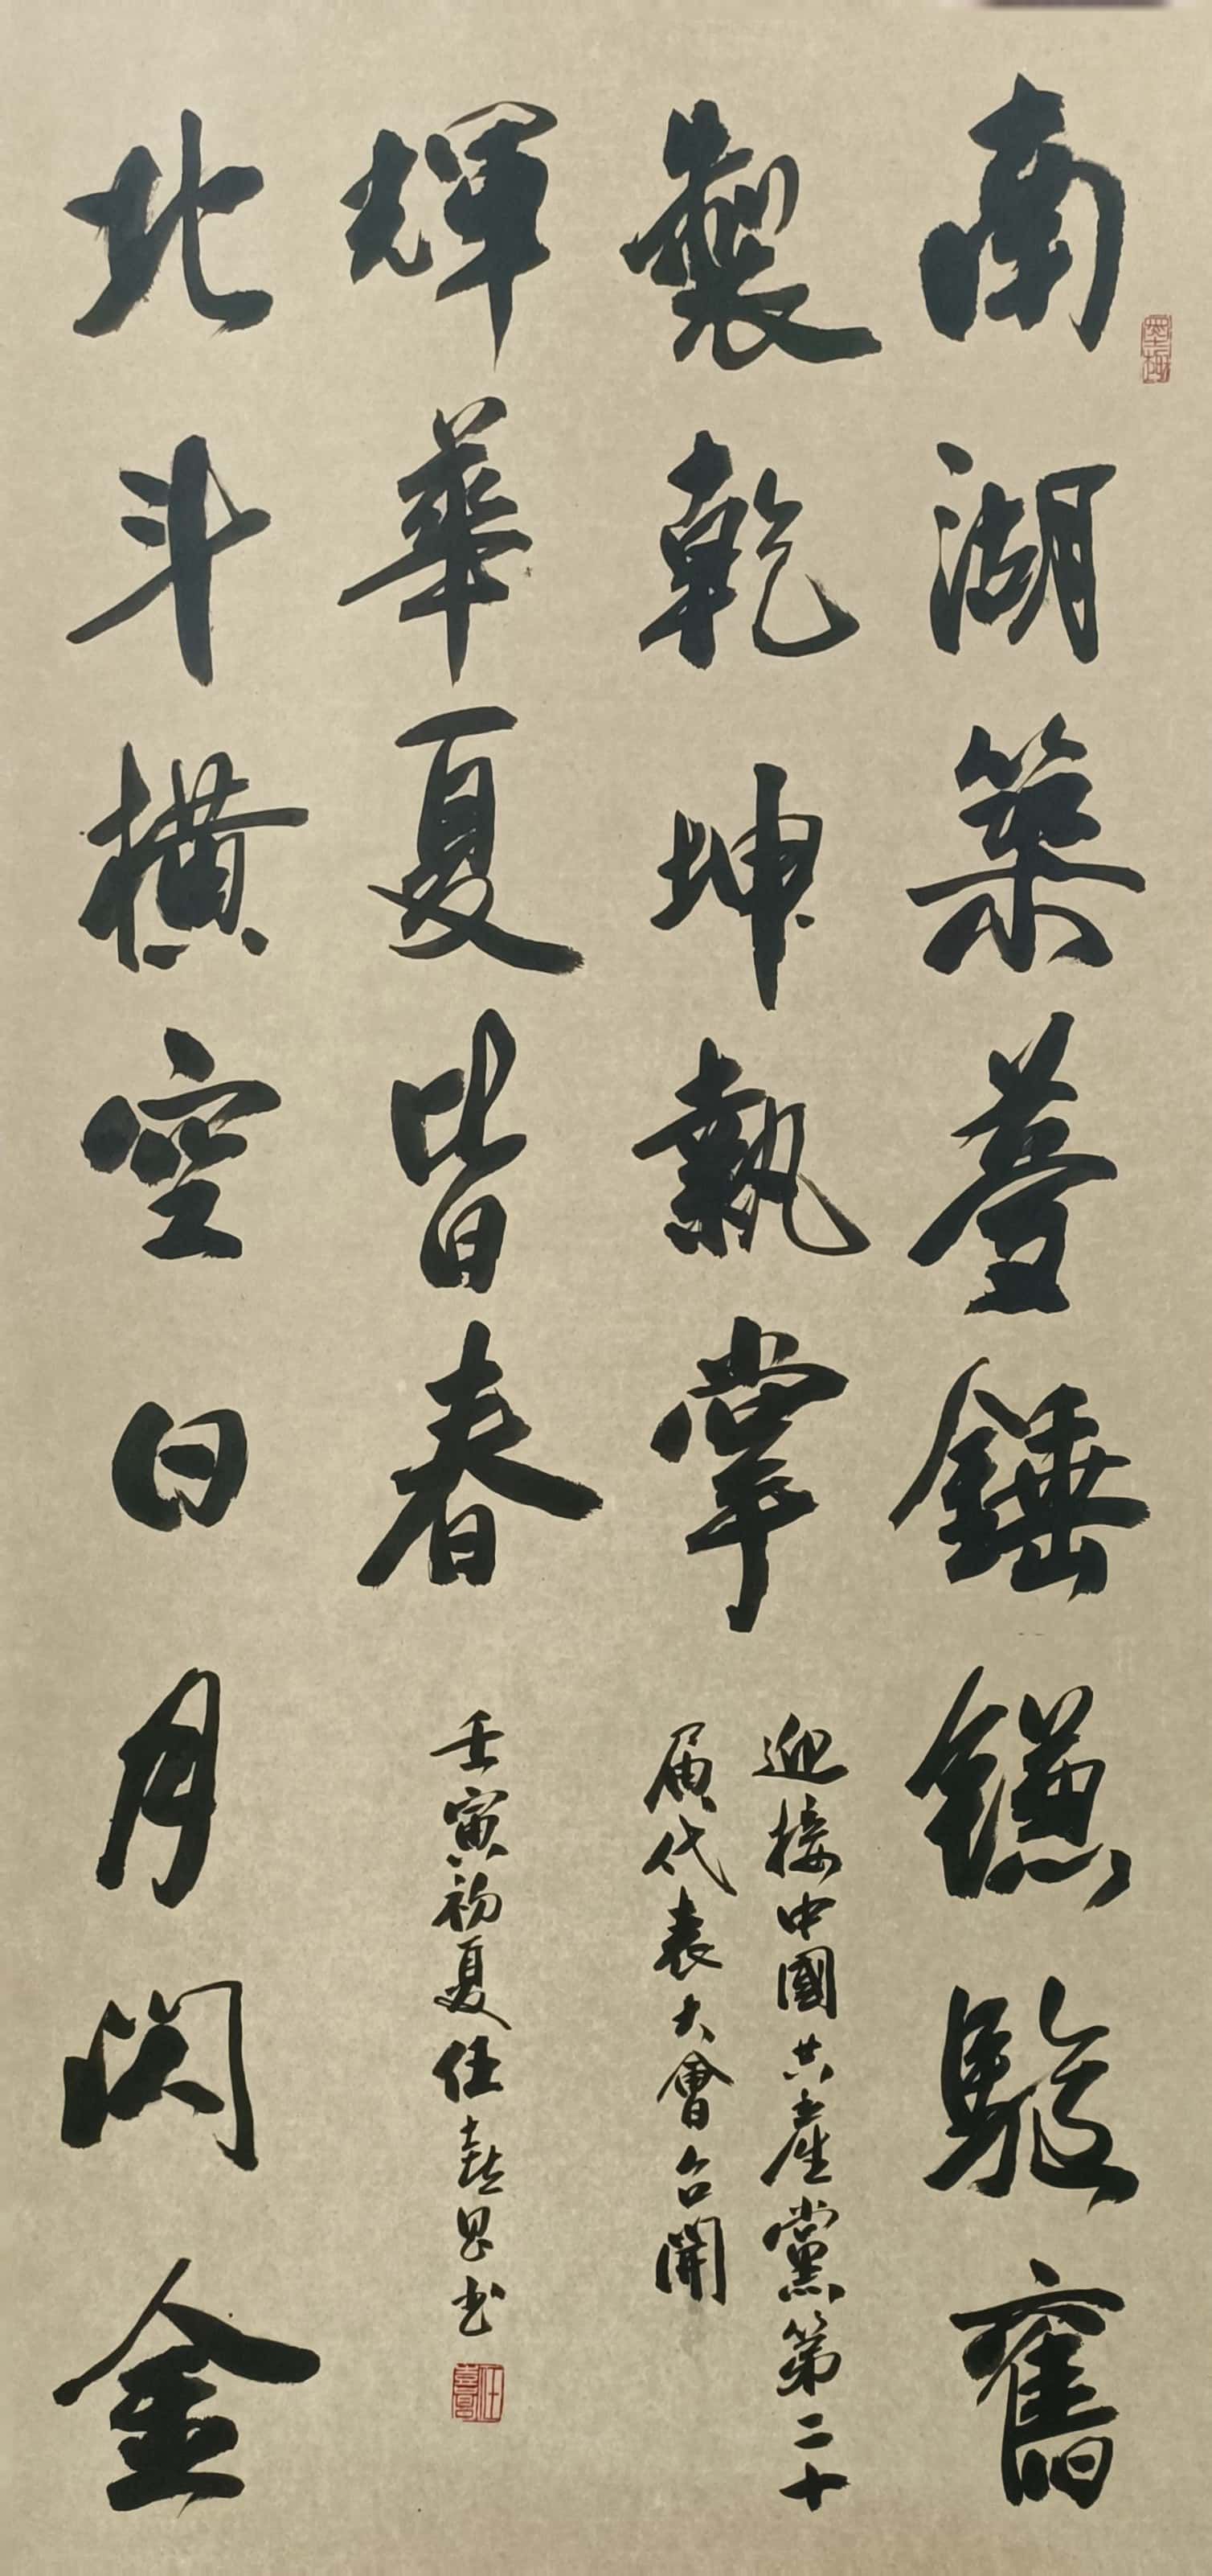 南湖築夢錘鐮舊
製乾坤執掌
迎接中國共產黨第二十
屆代表大會召開
北斗橫空日月閃金
輝華夏皆春
壬寅初夏任喜昌书